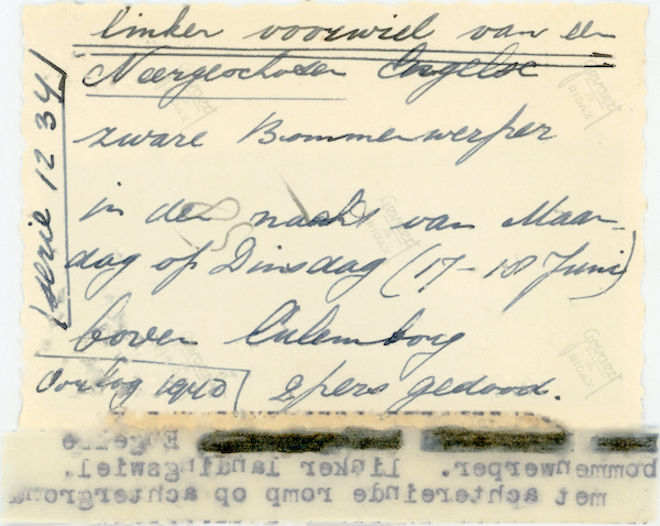 linker voorwiel van een
Neergeschoten Engelse
zware Bommenwerper
in de nacht van Maan-
dag op Dinsdag (17-18 Juni)
boven Culemborg
Oorlog 1940 2 pers gedood.
serie 1 2 3 4
Gevaert
RIDAX
Gevaert
RIDAX
Gevaert
RIDAX
Engelse
bommenwerper. linker landingswiel.
met achtereinde romp op achtergrond